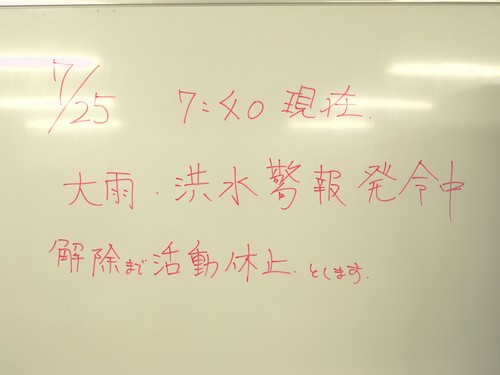 7/25 7:40 現在.
大雨.洪水警報発令中
解除まで活動休止.とします.